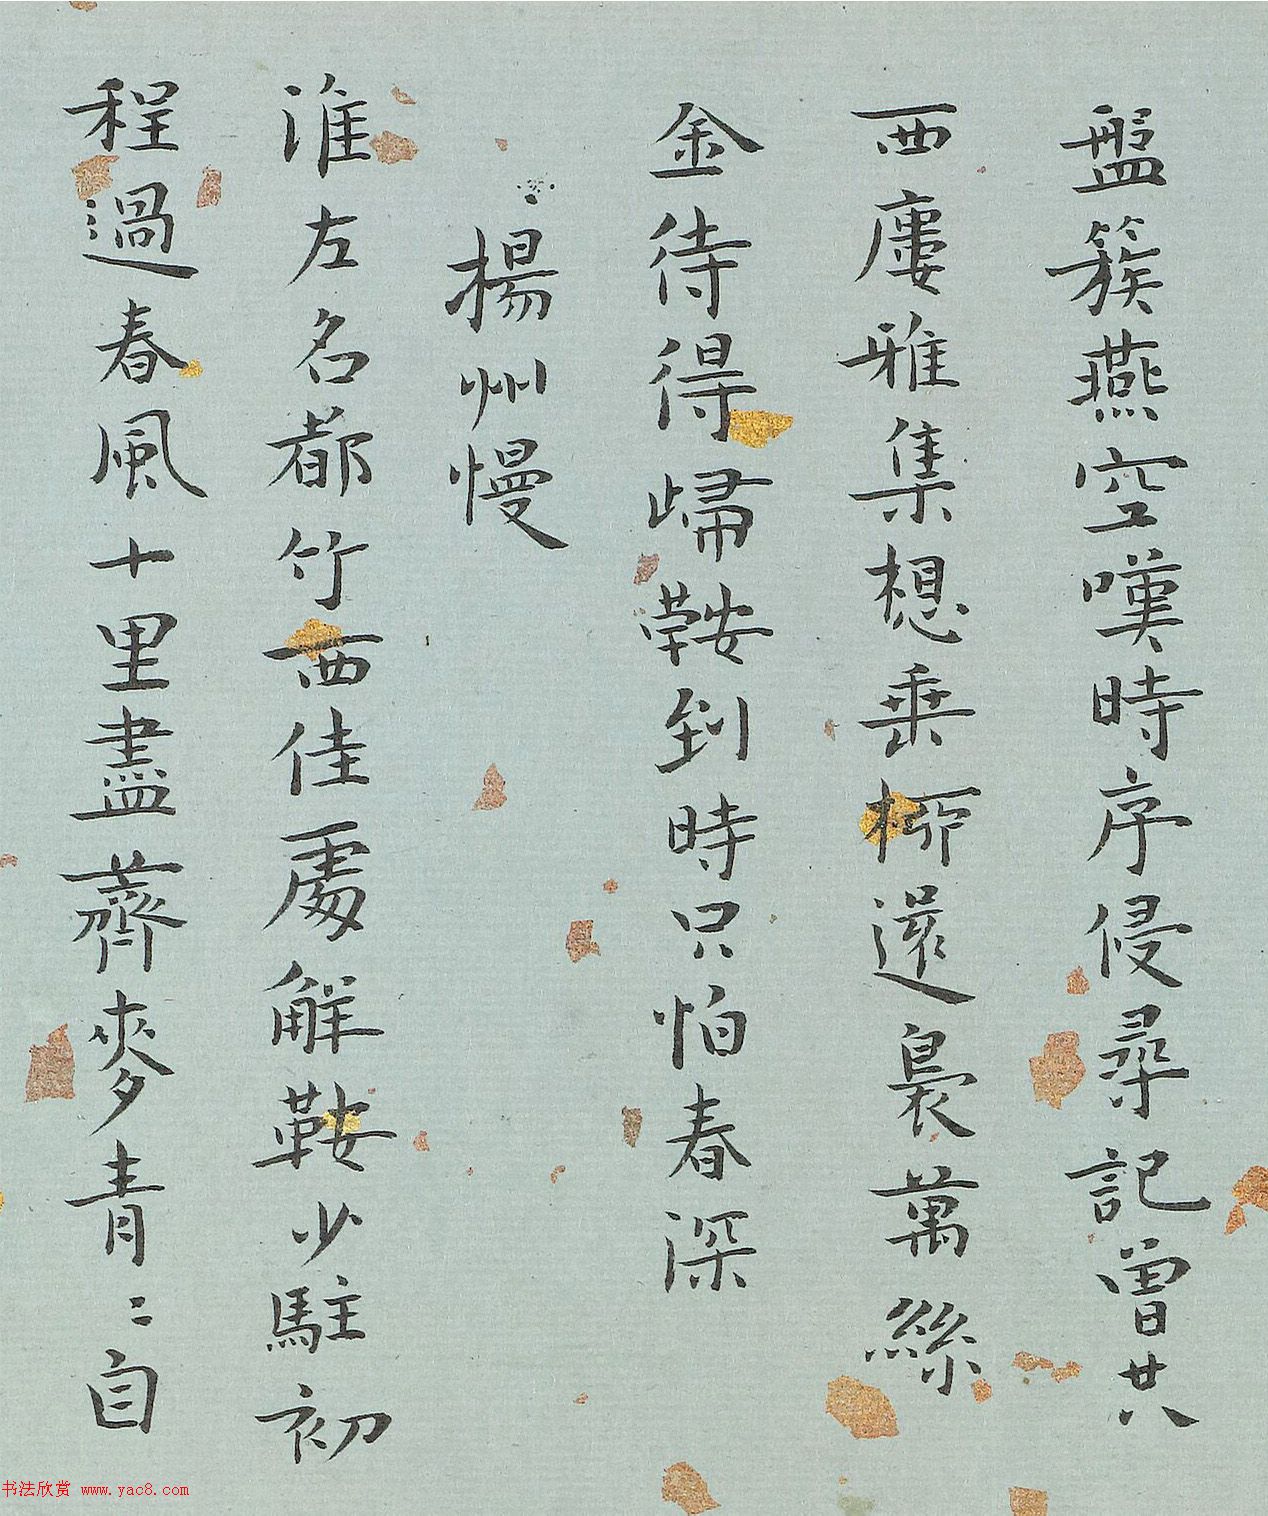 盤簇燕空嘆時序侵尋記曽共
西廔雅集想垂柳還裊萬絲
金待得歸鞍到時只怕春深
揚州慢
淮左名都竹西佳處解鞍少駐初
程過春風十里盡薺麥青〻自
书法欣赏 www.yac8.com